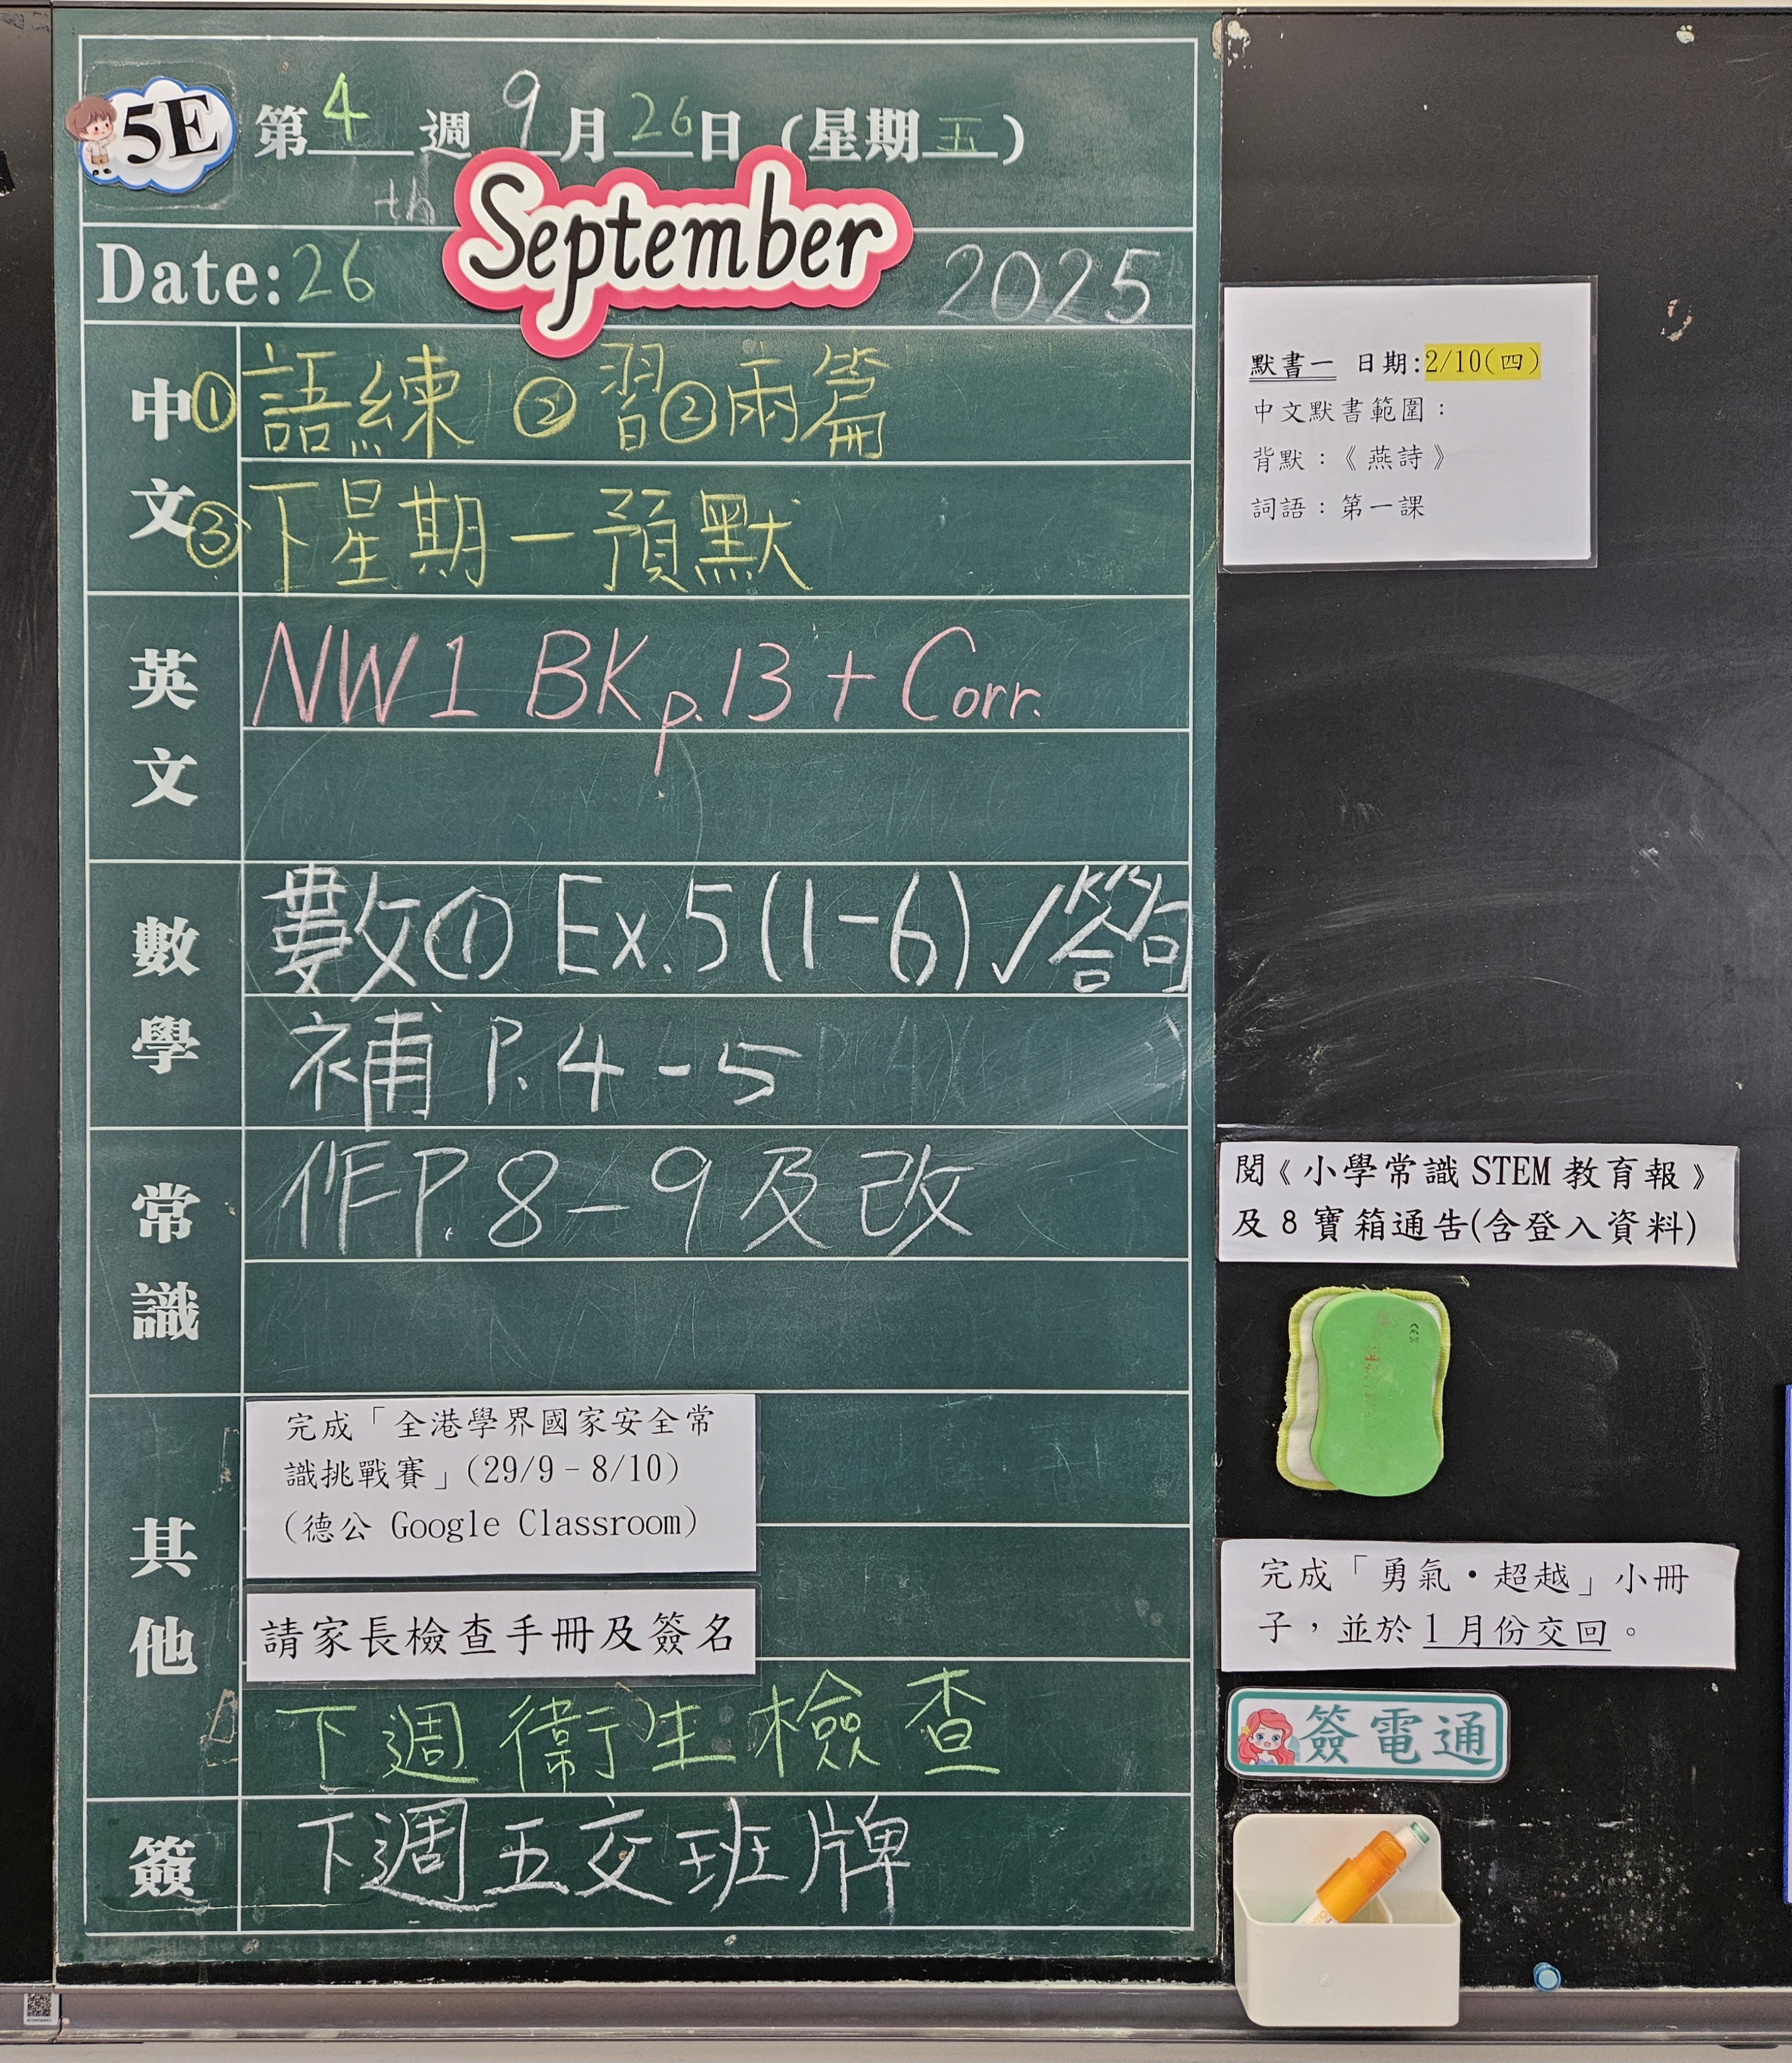 5E
第4週 9月26日(星期五)
th
Date: 26 September 2025
中文
①語練 ②習②兩篇
③下星期一預默
英文
NW1 BK p.13 + Corr.
數學
數① Ex.5(1-6)✓答句
補 P.4-5
常識
作P.8-9及改
其他
完成「全港學界國家安全常
識挑戰賽」(29/9－8/10)
(德公 Google Classroom)
請家長檢查手冊及簽名
下週衞生檢查
簽
下週五交班牌
默書一 日期:2/10(四)
中文默書範圍：
背默：《燕詩》
詞語：第一課
閱《小學常識 STEM 教育報》
及 8 寶箱通告(含登入資料)
完成「勇氣•超越」小冊
子，並於 1 月份交回。
簽電通